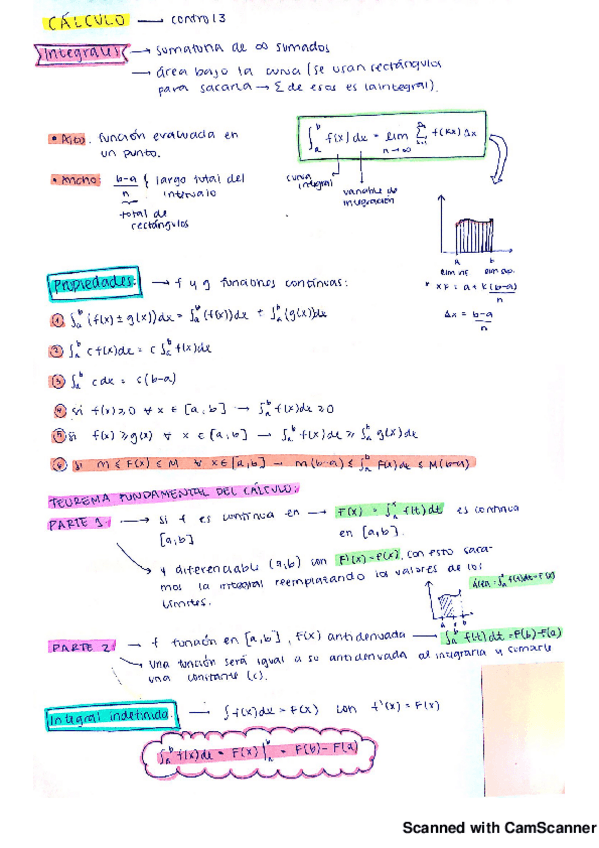 CÁLCULO → control 3
Integrales → sumatoria de ∞ sumados
→ área bajo la curva (se usan rectángulos
para sacarla → Σ de esos es la integral).
• Alto: función evaluada en
un punto.
∫ₐᵇ f(x) dx = lim n→∞ Σ f(xk) Δx
• Ancho: b-a/n { largo total del
intervalo
total de
rectángulos
curva
integral
variable de
integración
a b
* xk = a + k(b-a)/n
Δx = b-a/n
Propiedades: → f y g funciones continuas:
① ∫ₐᵇ (f(x) ± g(x)) dx = ∫ₐᵇ (f(x)) dx + ∫ₐᵇ (g(x)) dx
② ∫ₐᵇ c f(x) dx = c ∫ₐᵇ f(x) dx
③ ∫ₐᵇ c dx = c(b-a)
④ si f(x) ≥ 0 ∀ x ∈ [a,b] → ∫ₐᵇ f(x) dx ≥ 0
⑤ si f(x) ≥ g(x) ∀ x ∈ [a,b] → ∫ₐᵇ f(x) dx ≥ ∫ₐᵇ g(x) dx
⑥ si m ≤ F(x) ≤ M ∀ x ∈ [a,b] → m(b-a) ≤ ∫ₐᵇ F(x) dx ≤ M(b-a)
TEOREMA FUNDAMENTAL DEL CÁLCULO:
PARTE 1 → si f es continua en → F(x) = ∫ₐˣ f(t) dt es continua
[a,b] en [a,b].
y diferenciable (a,b) con F'(x) = f(x), con esto saca-
mos la integral reemplazando los valores de los
límites.
Área = ∫ₐˣ f(t) dt = F(x)
a x b
PARTE 2 → f función en [a,b], F(x) antiderivada → ∫ₐᵇ f(t) dt = F(b) - F(a)
Una función será igual a su antiderivada al integrarla y sumarle
una constante (c).
Integral indefinida → ∫ f(x) dx = F(x) con f'(x) = F(x)
∫ₐᵇ f(x) dx = F(x) |ₐᵇ = F(b) - F(a)
Scanned with CamScanner